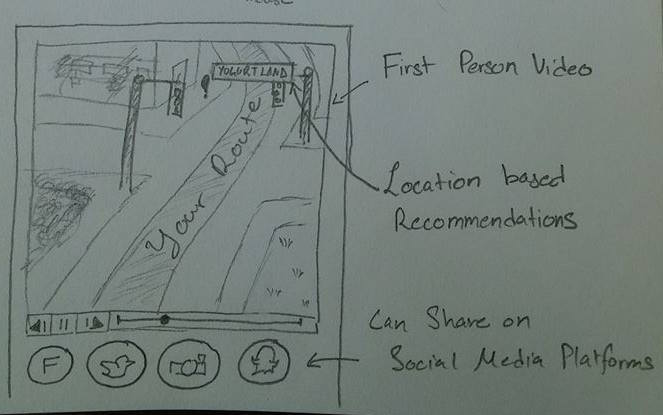 YOGURTLAND
Your Route
F
First Person Video
Location based
Recommendations
Can Share on
Social Media Platforms